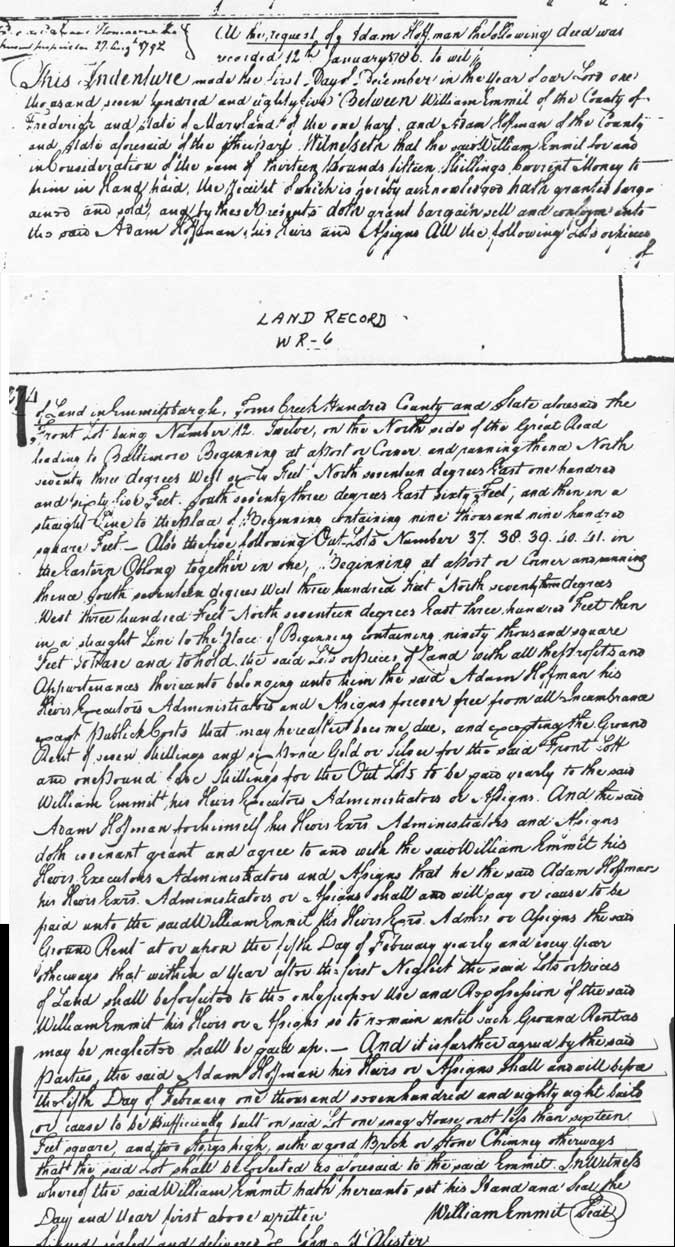 27 Augt 1792
At the request of Adam Hoffman the following deed was
recorded 12th January 1786. to wit,
This Indenture made the first Day of December in the Year of our Lord one
thousand seven hundred and eighty five Between William Emmit of the County of
Frederick and State of Maryland of the one part, and Adam Hoffman of the County
and State aforesaid of the other part. Witnesseth that the said William Emmit for and
in Consideration of the sum of thirteen Pounds fifteen Shillings Current Money to
him in Hand paid, the Receipt of which is hereby acknowledged hath granted barg-
ained and sold, and by these Presents doth grant bargain sell and confirm unto
the said Adam Hoffman, his Heirs and Assigns All the following Lots or pieces
of
LAND RECORD
WR-6
274
of Land in Emmitsburgh, Toms Creek Hundred County and State aforesaid the
Front Lot being Number 12. Twelve, on the North side of the Great Road
leading to Baltimore Beginning at a Post or Corner and running thence North
seventy three degrees West sixty Feet North seventeen degrees East one hundred
and sixty five Feet. South seventy three degrees East sixty Feet, and then in a
straight Line to the place of Beginning containing nine thousand nine hundred
square Feet - Also the five following Out Lots Number 37. 38. 39. 40. 41. in
the Eastern Oblong together in one, Beginning at a Post or Corner and running
thence South seventeen degrees West three hundred Feet North seventy three degrees
West three hundred Feet North seventeen degrees East three hundred Feet then
in a straight Line to the Place of Beginning containing ninety thousand square
Feet To Have and to hold the said Lots or pieces of Land with all the Profits and
Appurtenances thereunto belonging unto him the said Adam Hoffman his
Heirs Executors Administrators and Assigns forever free from all Incumbrance
except Publick Costs that may hereafter become due, and excepting the Ground
Rent of seven Shillings and six Pence Gold or Silver for the said Front Lott
and one Pound five Shillings for the Out Lots to be paid yearly to the said
William Emmit, his Heirs Executors Administrators or Assigns. And the said
Adam Hoffman for himself his Heirs Exrs. Administrators and Assigns
doth covenant grant and agree to and with the said William Emmit his
Heirs Executors Administrators and Assigns that he the said Adam Hoffman
his Heirs Exrs. Administrators or Assigns shall and will pay or cause to be
paid unto the said William Emmit his Heirs Exrs. Admrs or Assigns the said
Ground Rent at or upon the fifth Day of February yearly and every Year
otherways that within a Year after the first Neglect the said Lots or pieces
of Land shall be forfeited to the only proper Use and Repossession of the said
William Emmit his Heirs or Assigns so to remain until such Ground Rent as
may be neglected shall be paid up. - And it is further agreed by the said
Parties, the said Adam Hoffman his Heirs or Assigns Shall and will before
the fifth Day of February one thousand seven hundred and eighty eight build
or cause to be Sufficiently built on said Lot one snug House not less than sixteen
Feet square, and two Storys high, with a good Brick or Stone Chimney otherways
that the said Lot shall be forfeited as aforesaid to the said Emmit. In Witness
whereof the said William Emmit hath hereunto set his Hand and Seal the
Day and Year first above written William Emmit (Seal)
Signed sealed and delivered of John McAlester